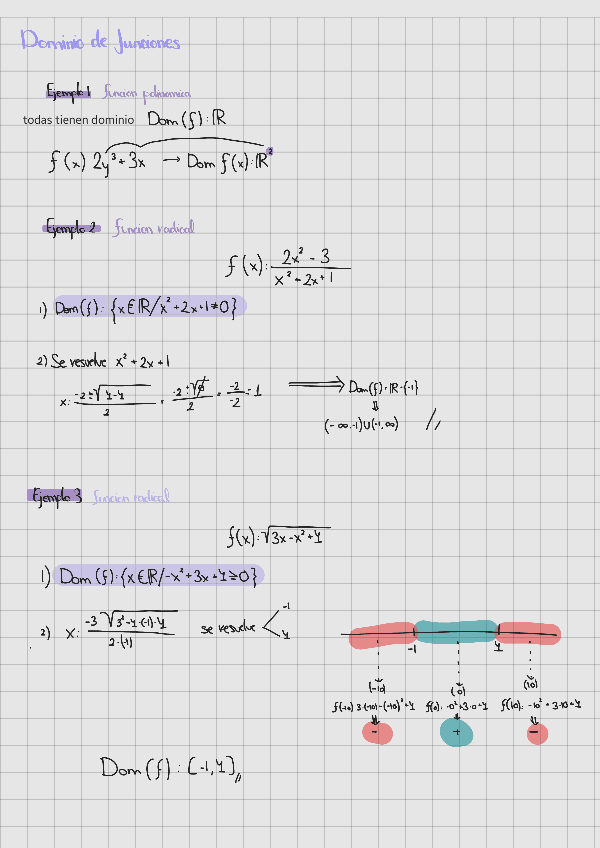 Dominio de funciones
Ejemplo 1 funcion polinomica
todas tienen dominio Dom (f): ℝ
f(x) 2y³+3x → Dom f(x): ℝ²
Ejemplo 2 funcion radical
f(x): (2x² - 3)/(x² - 2x + 1)
1) Dom(f): {x∈ℝ/x²+2x+1≠0}
2) Se resuelve x² + 2x + 1
x: (-2±√(4-4))/2 = (-2±√0)/2 = -2/-2 = 1 ⟹ Dom(f): ℝ-{-1}
⇓
(-∞,-1)∪(-1,∞) //
Ejemplo 3 funcion radical
f(x): √(3x-x²+4)
1) Dom(f): {x∈ℝ/-x²+3x+4≥0}
2) x: (-3√(3²-4·(-1)·4))/(2·(-1)) se resuelve < -1
4
-1 4
(-10) (0) (10)
f(-10) 3·(-10)-(-10)²+4 f(0): -0²+3·0+4 f(10): -10²+3·10+4
- + -
Dom(f): [-1,4] //